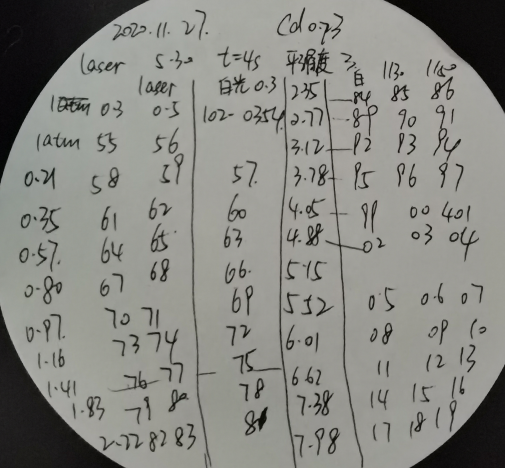 2020.11.27. Cd 0.93
laser 5.30 t=4s 平衡度
laser 白光 0.3 2.35 白 1130 1150
0.3 0.5 102-0354 84 85 86
1atm 55 56 2.77 89 90 91
3.12 92 93 94
0.21 58 59 57. 3.78 95 96 97
0.35 61 62 60 4.05 99 00 401
0.57. 64 65 63 4.88 02 03 04
0.80 67 68 66. 5.15
69 5.52 0.5 0.6 07
0.97. 70 71 72 6.01 08 09 10
1.16 73 74 75 11 12 13
1.41 76 77 78 6.62 14 15 16
1.83 79 80 7.38 17 18 19
2.22 82 83 81 7.98